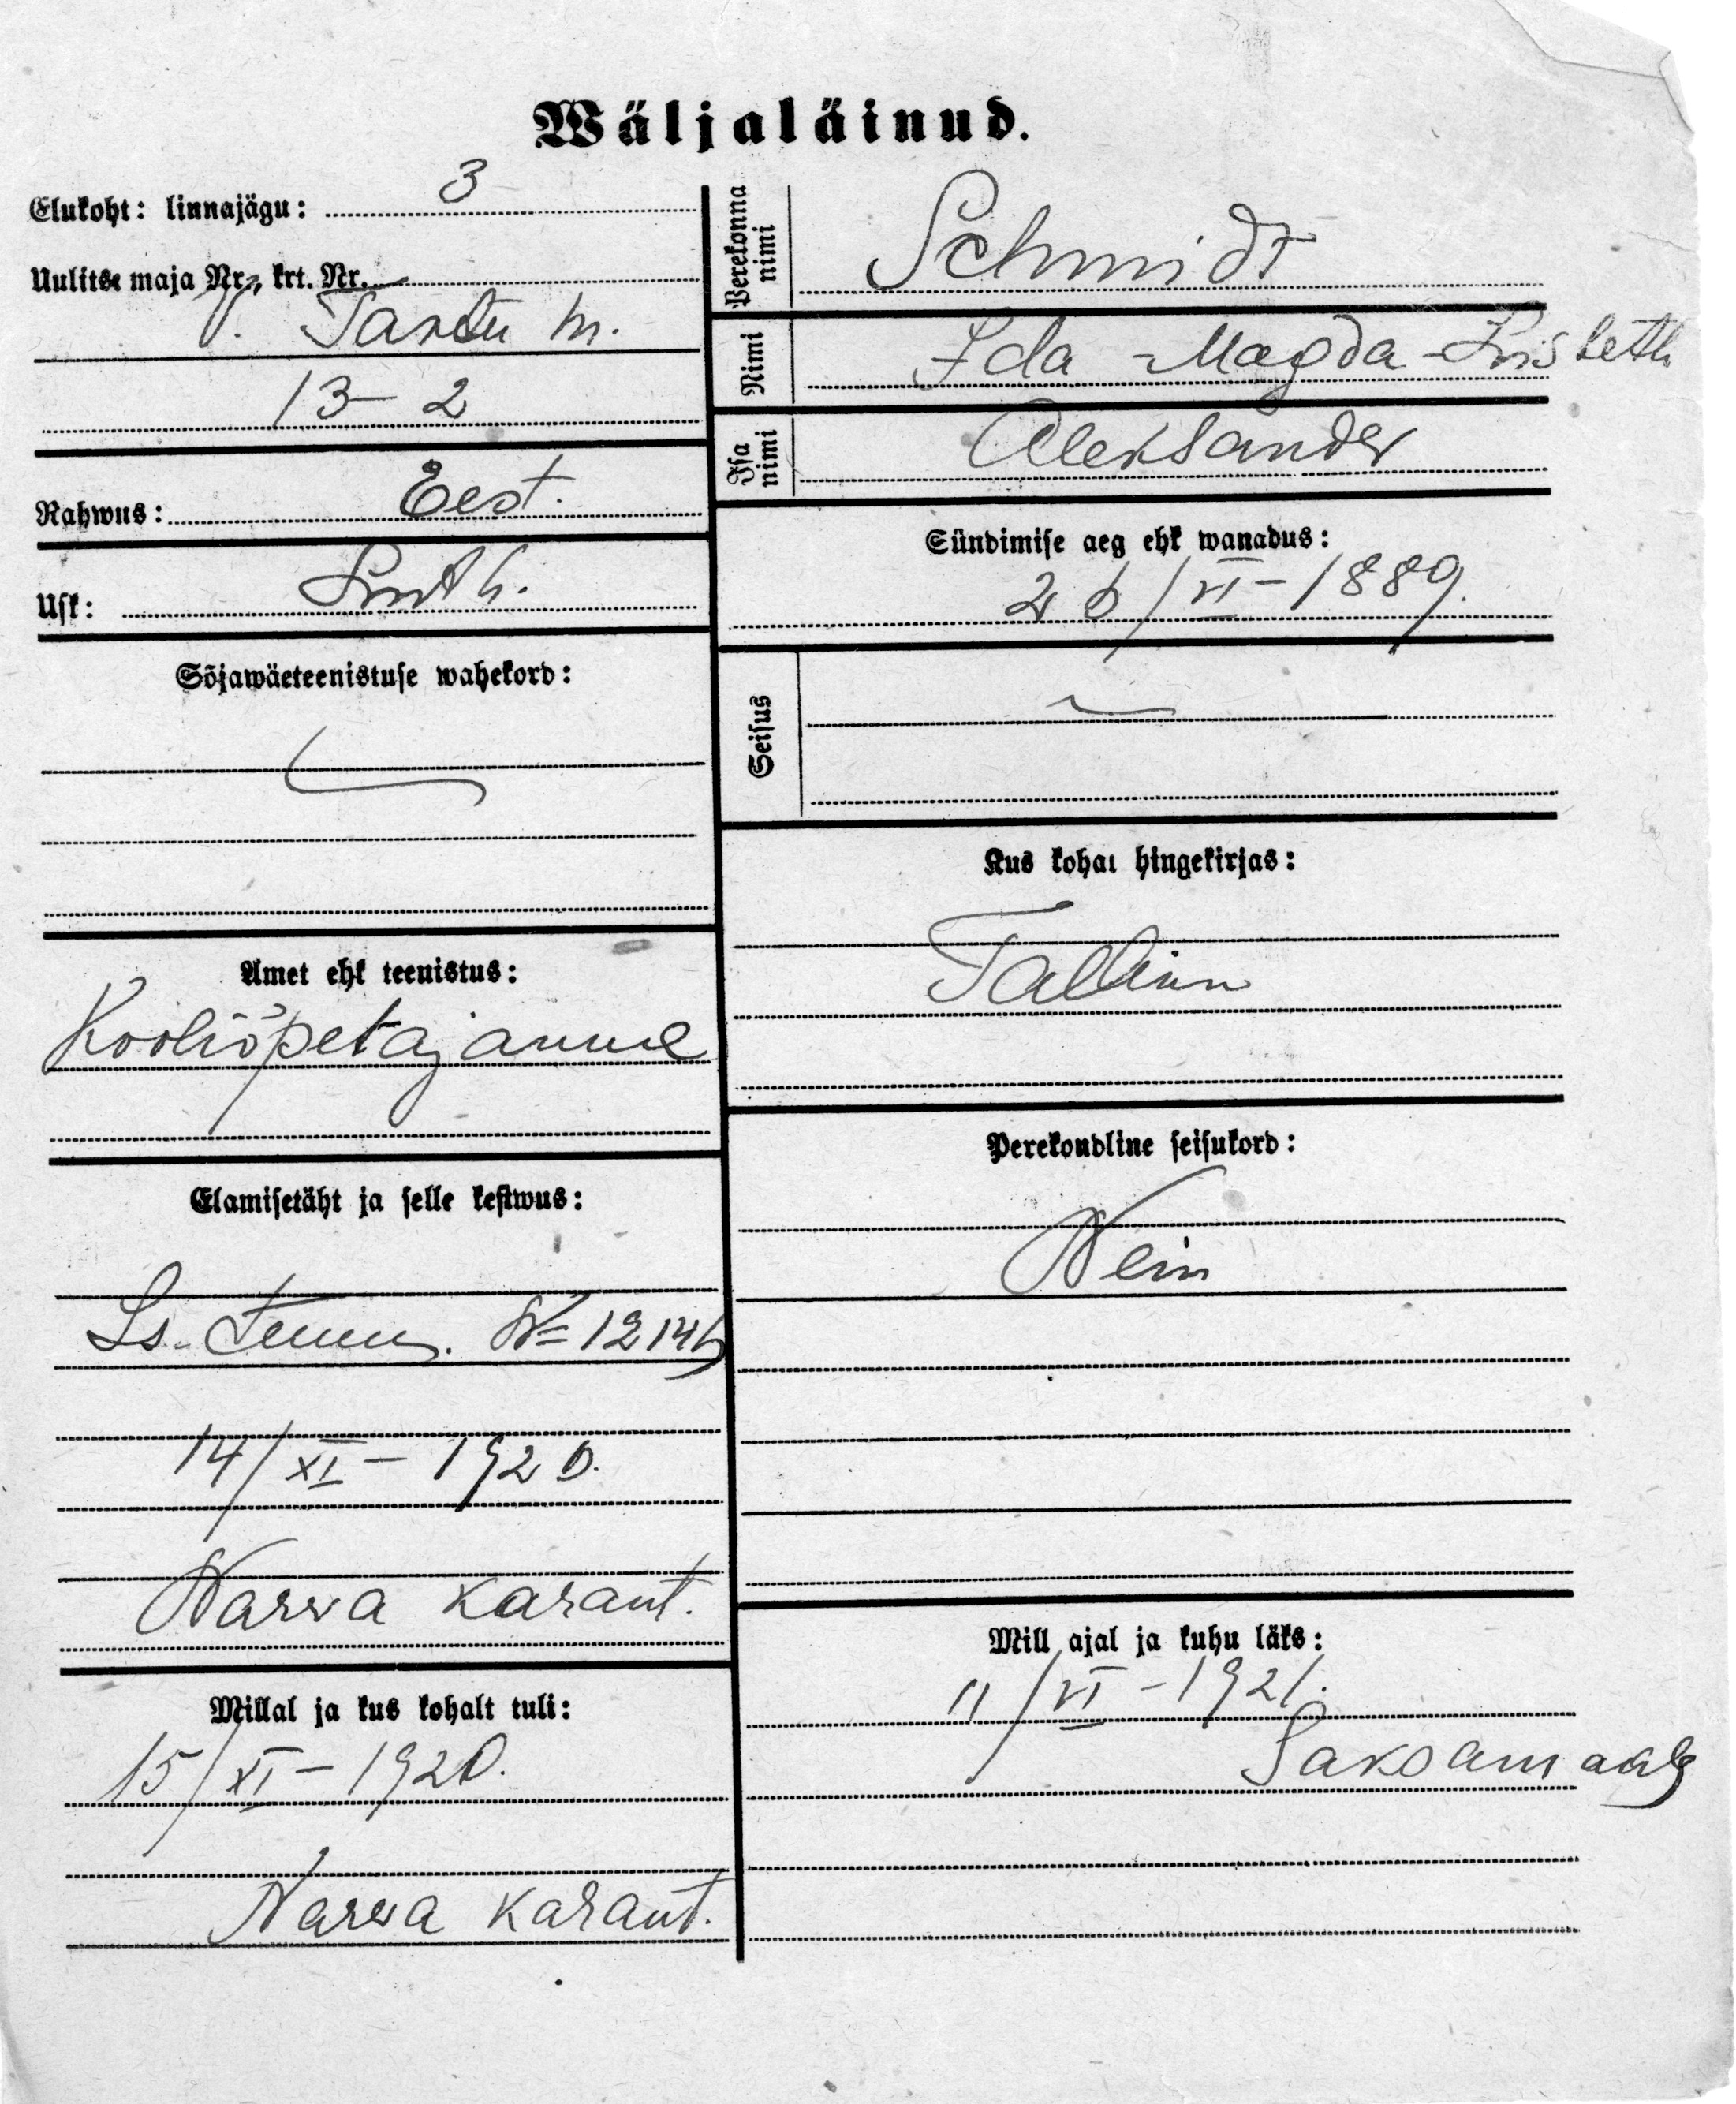 Wäljaläinud.
Elukoht: linnajägu: 3
Uulitse maja Nr., krt. Nr.
V. Tartu m.
13-2
Rahwus: Eest.
Usk: Luth.
Sõjawäeteenistuse wahekord:
Amet ehk teenistus:
Kooliõpetajanna
Elamisetäht ja selle kestwus:
Is. tunn. № 12146
14/XI-1920.
Narva karant.
Millal ja kus kohalt tuli:
15/XI-1920.
Narva karant.
Perekonna nimi
Schmidt
Nimi
Ida-Magda-Lisbeth
Isa nimi
Aleksander
Sündimise aeg ehk wanadus:
26/VI-1889.
Seisus
Kus kohal hingekirjas:
Tallinn
Perekondline seisukord:
Nein
Mill ajal ja kuhu läks:
11/VI-1921.
Saksamaale